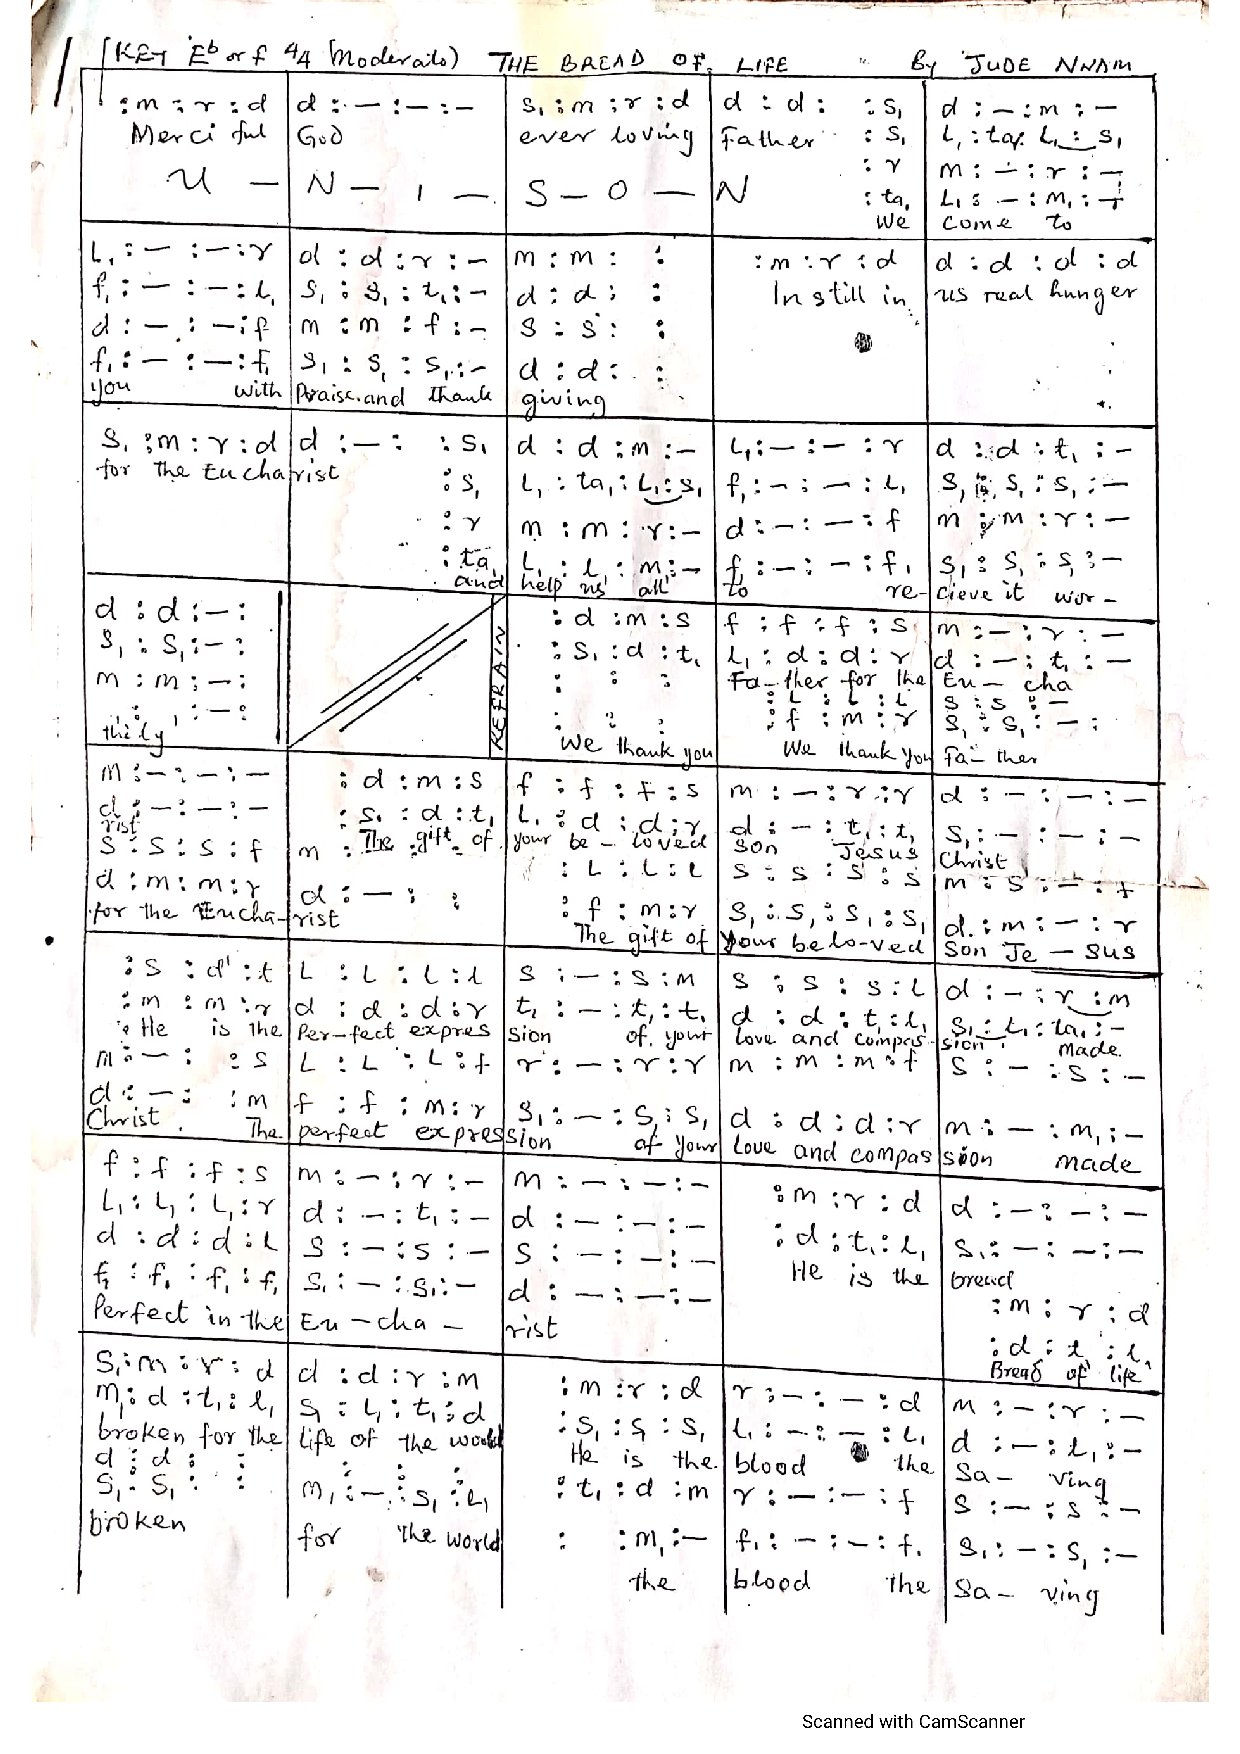 (KEY Eb or f 4/4 (Moderato) THE BREAD OF LIFE By JUDE NNAM
:m :r :d | d :- :- :- | s, :m :r :d | d :d : :s, | d :- :m :-
Merci ful God ever loving Father :s, | l, :ta, l, :s,
:r | m :- :r :-
U - N - I - S - O - N :ta, | l, :- :m, :-
We come to
l, :- :- :r | d :d :r :- | m :m : : | :m :r :d | d :d :d :d
f, :- :- :l, | s, :s, :t, :- | d :d : : | In still in us real hunger
d :- :- :f | m :m :f :- | s :s : :
f, :- :- :f, | s, :s, :s, :- | d :d : :
you with Praise and thank giving
s, :m :r :d | d :- : :s, | d :d :m :- | l, :- :- :r | d :d :t, :-
for the Eucharist :s, | l, :ta, :l, :s, | f, :- :- :l, | s, :s, :s, :-
:r | m :m :r :- | d :- :- :f | m :m :r :-
:ta, | l, :l :m :- | f :- :- :f, | s, :s, :s, :-
and help us all to re- cieve it wor-
d :d :- : | REFRAIN | :d :m :s | f :f :f :s | m :- :r :-
s, :s, :- : | :s, :d :t, | l, :d :d :r | d :- :t, :-
m :m :- : | : : : | Fa-ther for the Eu- cha
:l :l :l | s :s :-
: , :- : | : : : | :f :m :r | s, :s, :- :
thily We thank you We thank you Fa- ther
m :- :- :- | :d :m :s | f :f :f :s | m :- :r :r | d :- :- :-
d :- :- :- | :s, :d :t, | l, :d :d :r | d :- :t, :t, | s, :- :- :-
rist The gift of your be-loved son Jesus Christ
s :s :s :f | m : | :l :l :l | s :s :s :s | m :s :- :f
d :m :m :r | d :- : : | :f :m :r | s, :s, :s, :s, | d :m :- :r
for the Eucha-rist The gift of your belo-ved Son Je - sus
:s :d' :t | l :l :l :l | s :- :s :m | s :s :s :l | d :- :r :m
:m :m :r | d :d :d :r | t, :- :t, :t, | d :d :t, :l, | s, :l, :ta, :-
He is the Per-fect expres sion of your love and compas- sion made.
m :- : :s | l :l :l :f | r :- :r :r | m :m :m :f | s :- :s :-
d :- : :m | f :f :m :r | s, :- :s, :s, | d :d :d :r | m :- :m, :-
Christ. The perfect expression of your love and compassion made
f :f :f :s | m :- :r :- | m :- :- :- | :m :r :d | d :- :- :-
l, :l, :l, :r | d :- :t, :- | d :- :- :- | :d :t, :l, | s, :- :- :-
d :d :d :l | s :- :s :- | s :- :- :- | He is the bread
f, :f, :f, :f, | s, :- :s, :- | d :- :- :- | :m :r :d
Perfect in the Eu - cha - rist :d :t :l,
Bread of life
s, :m :r :d | d :d :r :m | :m :r :d | r :- :- :d | m :- :r :-
m, :d :t, :l, | s, :l, :t, :d | :s, :s, :s, | l, :- :- :l, | d :- :t, :-
broken for the life of the world He is the blood the Sa- ving
d :d : : | : : : | :t, :d :m | r :- :- :f | s :- :s :-
s, :s, : : | m, :- :s, :l, | : :m, :- | f, :- :- :f, | s, :- :s, :-
broken for the world the blood the Sa- ving
Scanned with CamScanner